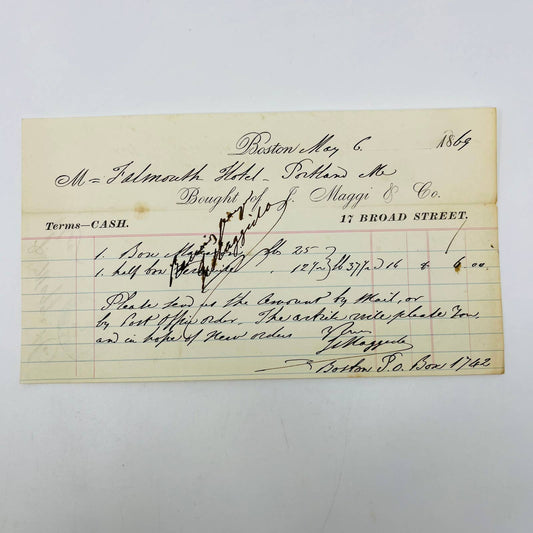 Boston May 6 1869
M= Falmouth Hotel - Portland Me
Bought of J. Maggi & Co.
Terms—CASH. 17 BROAD STREET.
1. Box lb 25
1. half box 12½ lb 37½ 16 6 6.00
Please send us the amount by Mail, or
by Post Office order. The article will please You,
and in hope of New orders
Boston P.O. Box 1742